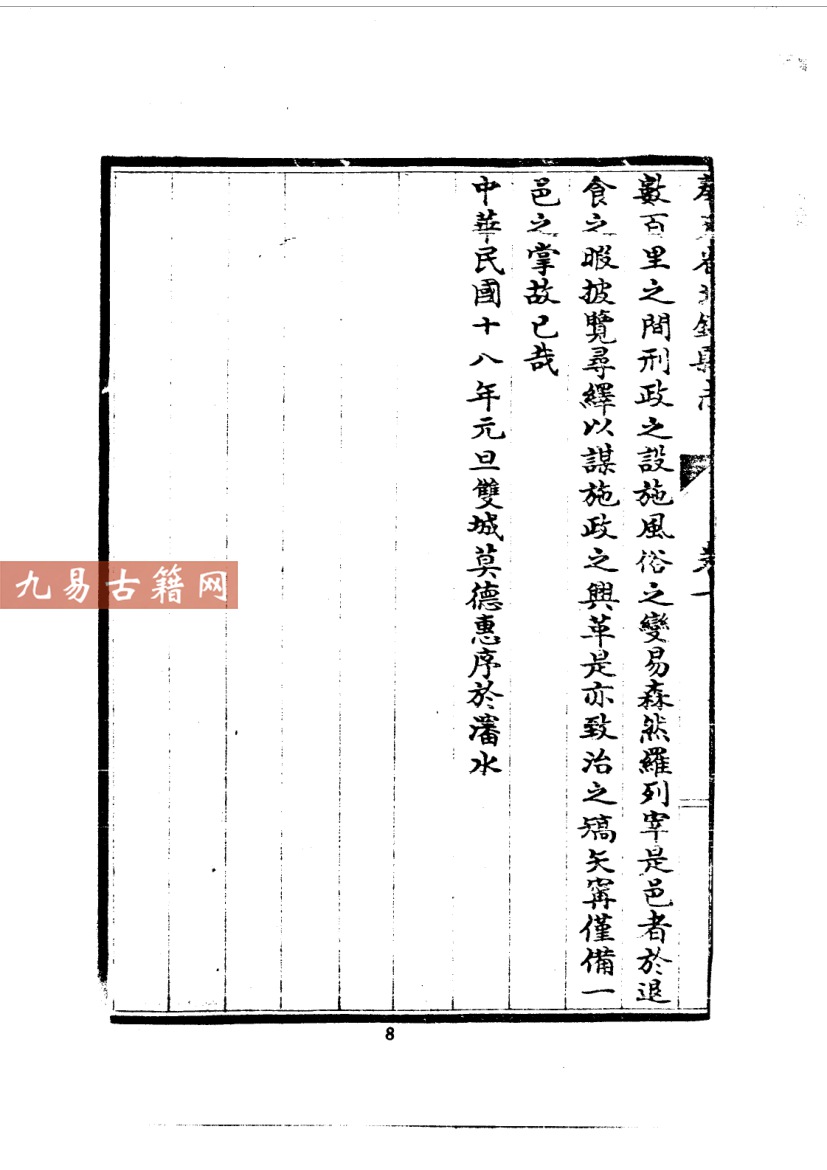 數百里之間刑政之設施風俗之變易森然羅列宰是邑者於退
食之暇披覽尋繹以謀施政之興革是亦致治之嚆矢寗僅備一
邑之掌故已哉
中華民國十八年元旦雙城莫德惠序於瀋水
九易古籍网
8